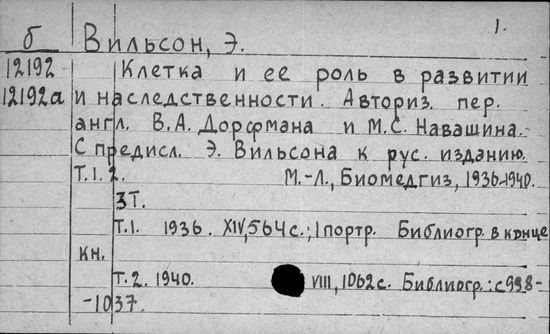 1.
б Вильсон, Э.
12192 Клетка и ее роль в развитии
12192а и наследственности. Авториз. пер.
англ. В.А. Дорфмана и М.С. Навашина.
С предисл. Э. Вильсона к рус. изданию.
Т.1.2. М.-Л., Биомедгиз, 1936-1940.
3т.
Т.1. 1936. XIV, 564 с.; 1 портр. Библиогр. в конце
кн.
Т.2. 1940. VIII, 1062 с. Библиогр.: с 998-
-1037.